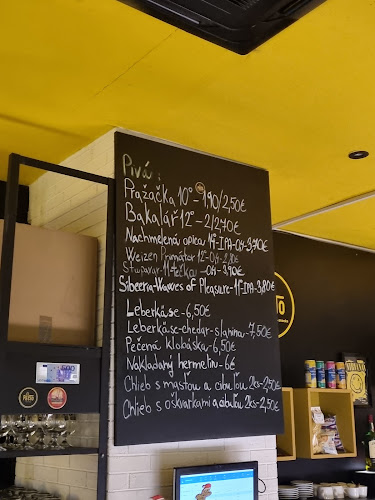 Pivá:
Pražačka 10° - 1,90/2,50€
Bakalář 12° - 2/2,70€
Nachmelená opica 14°-IPA-0,4-3,70€
Weizen Primátor 12°-0,4-2,90€
Stupavar-11 -0,4-3,90€
Sibeeria-Waves of Pleasure-11°IPA-3,80€
Leberkäse-6,50€
Leberkäse-chedar-slanina-7,50€
Pečená klobáska-6,50€
Nakladaný hermelín-6€
Chlieb s masťou a cibuľou 2ks-2,50€
Chlieb s oškvarkami a cibuľou 2ks-2,50€